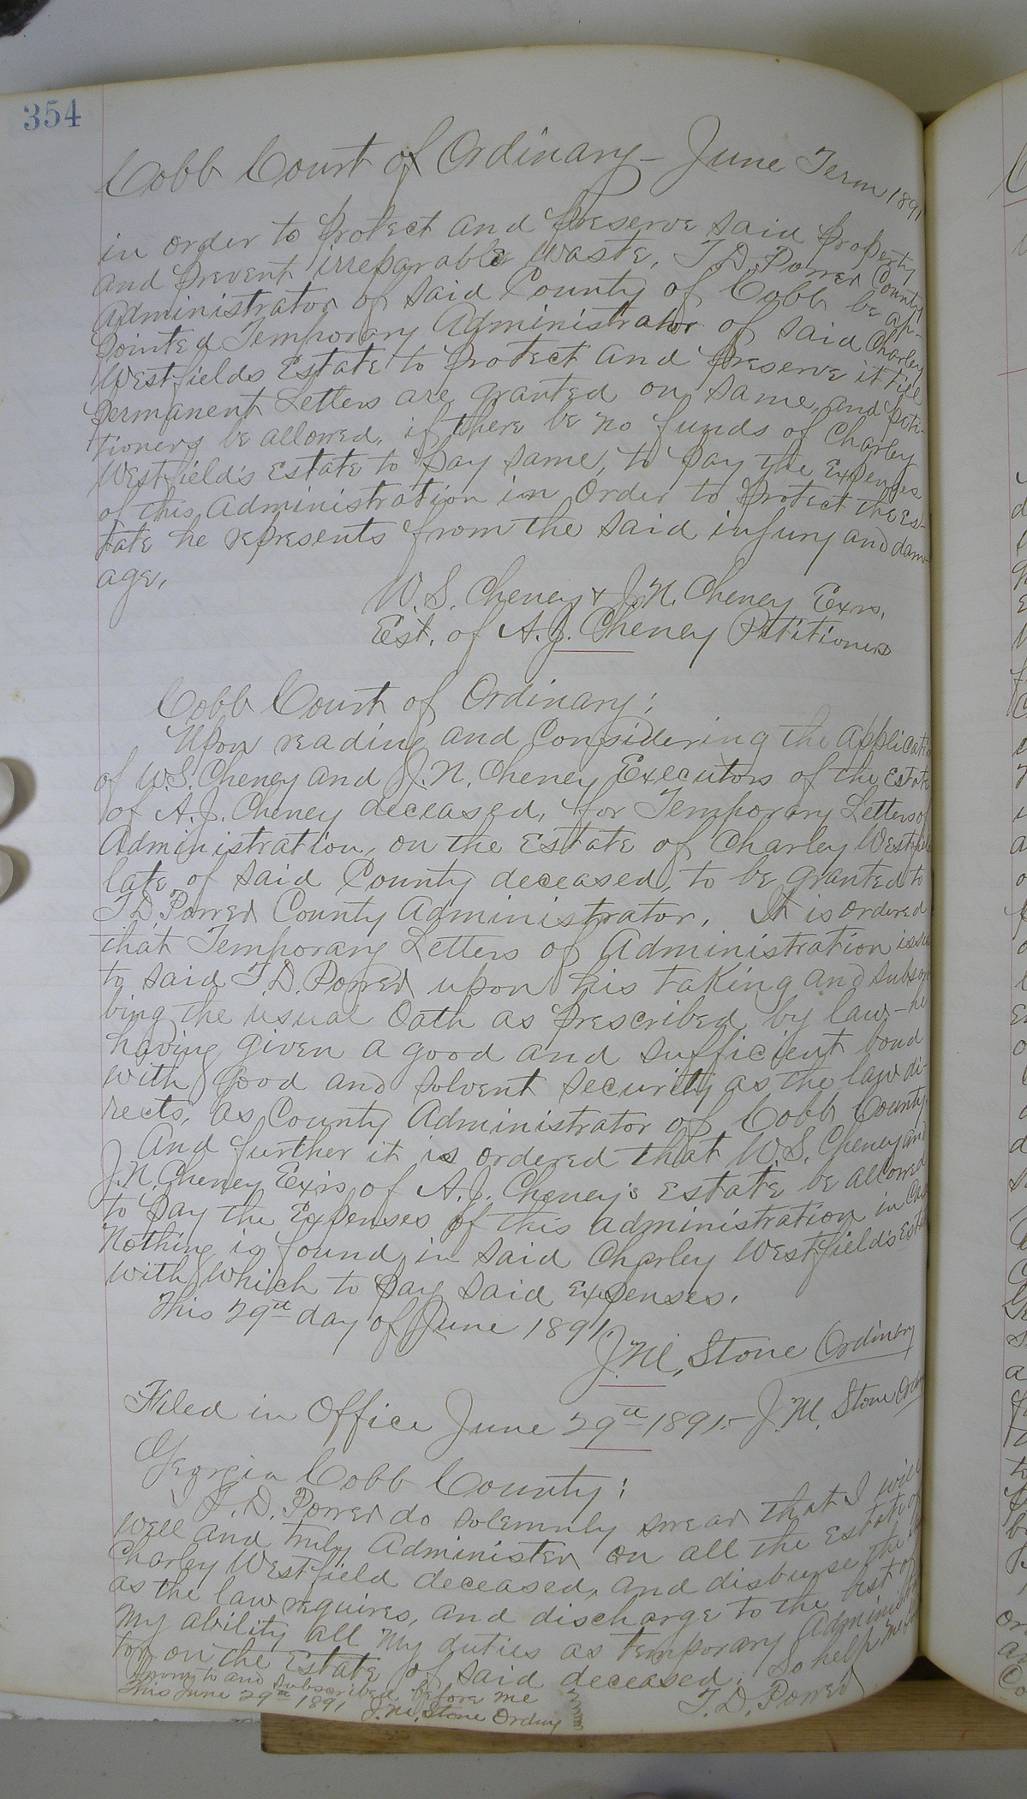 354
Cobb Court of Ordinary - June Term 1891
in order to protect and preserve said property
and prevent irreparable waste, T. D. Power County
Administrator of said County of Cobb be ap-
pointed Temporary Administrator of said Charley
Westfields Estate to protect and preserve it till
permanent Letters are granted on same, and Peti-
tioners be allowed, if there be no funds of Charley
Westfield's Estate to pay same, to pay the Expenses
of this Administration in order to protect the es-
tate he represents from the said injury and dam-
age.
W. S. Cheney & J. N. Cheney Exrs.
Est. of A. J. Cheney Petitioners
Cobb Court of Ordinary:
Upon reading and Considering the Applicati
of W. S. Cheney and J. N. Cheney Executors of the Estate
of A. J. Cheney deceased, for Temporary Letters of
Administration, on the Estate of Charley Westfi
late of said County deceased, to be granted to
T. D. Power County Administrator. It is ordered
that Temporary Letters of Administration issue
to said T. D. Power upon his taking and subscri
bing the usual Oath as prescribed by law - he
having given a good and sufficient bond
with good and solvent security as the law di-
rects, as County Administrator of Cobb County.
And further it is ordered that W. S. Cheney and
J. N. Cheney Exrs, of A. J. Cheney's Estate, be allowed
to pay the Expenses of this administration in
Nothing is found in said Charley Westfield's Est
with which to pay said expenses.
This 29th day of June 1891.
J. M. Stone Ordinary
Filed in Office June 29th 1891 - J. M. Stone
Georgia Cobb County:
I T. D. Power do solemnly swear that I will
well and truly Administer on all the Estate of
Charley Westfield deceased, and disburse the
as the law requires, and discharge to the best of
my ability all my duties as temporary Administra
tor on the Estate of said deceased. So help me
Sworn to and subscribed before me
T. D. Power
This June 29th 1891 J. M. Stone Ordny